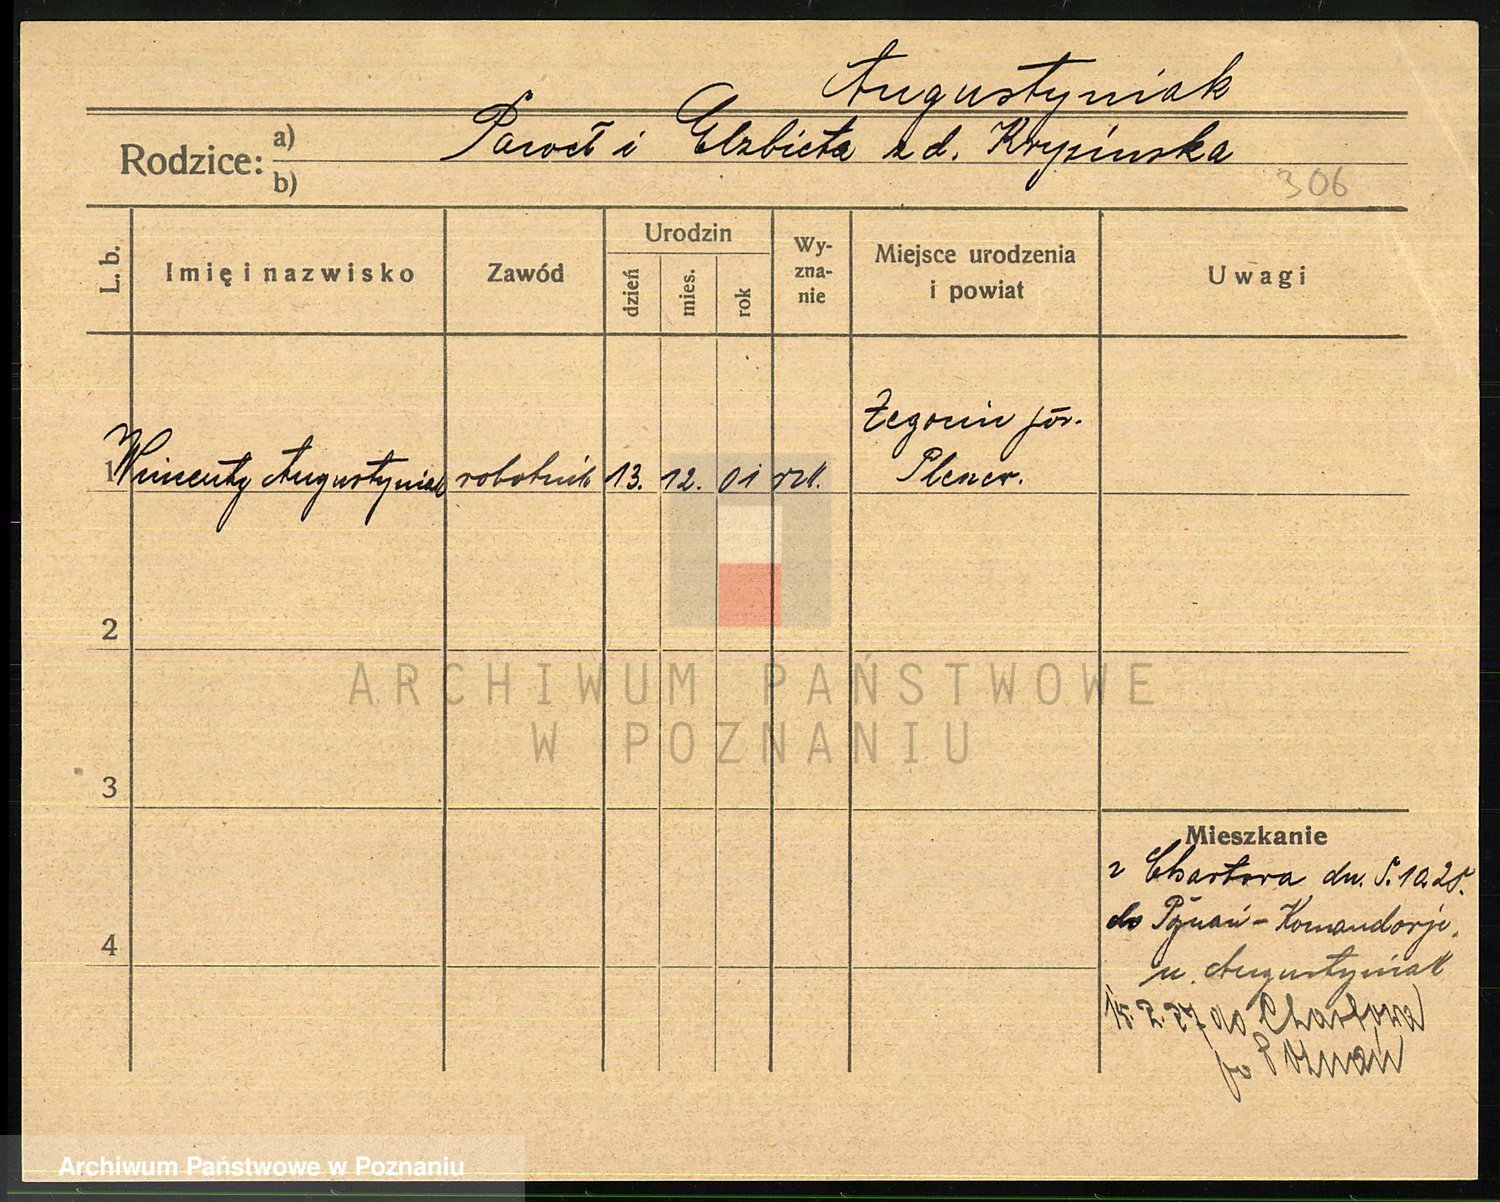 Augustyniak
Rodzice: a) b) Paweł i Elzbieta z d. Krysińska
306
L. b.
Imię i nazwisko
Zawód
Urodzin
dzień
mies.
rok
Wy-
zna-
nie
Miejsce urodzenia
i powiat
Uwagi
Żegocin pow.
1 Wincenty Augustyniak robotnik 13. 12. 01 rzk. Plesz.
2
3
4
Mieszkanie
z Chartowa dn. 5.10.25.
do Poznań - Komandorje.
u. Augustyniak
15.2.27 do Chartowa
p. Poznań
ARCHIWUM PAŃSTWOWE
W POZNANIU
Archiwum Państwowe w Poznaniu